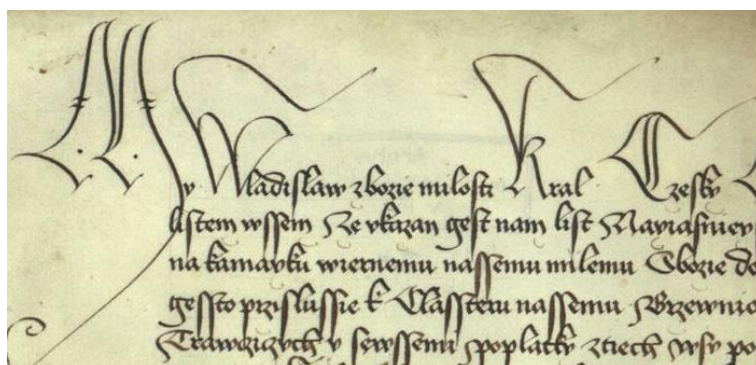 My Wladislaw z bozie milosti Kral Czesky
listem wssem Ze vkazan gest nam list Nayiasniey
na kamayku wiernemu nassemu milemu Tbozie de
gessto przislussie k Classteru nassemu Brzewnio
Trawczizych y sewssemi poplatky ztiech wsy po